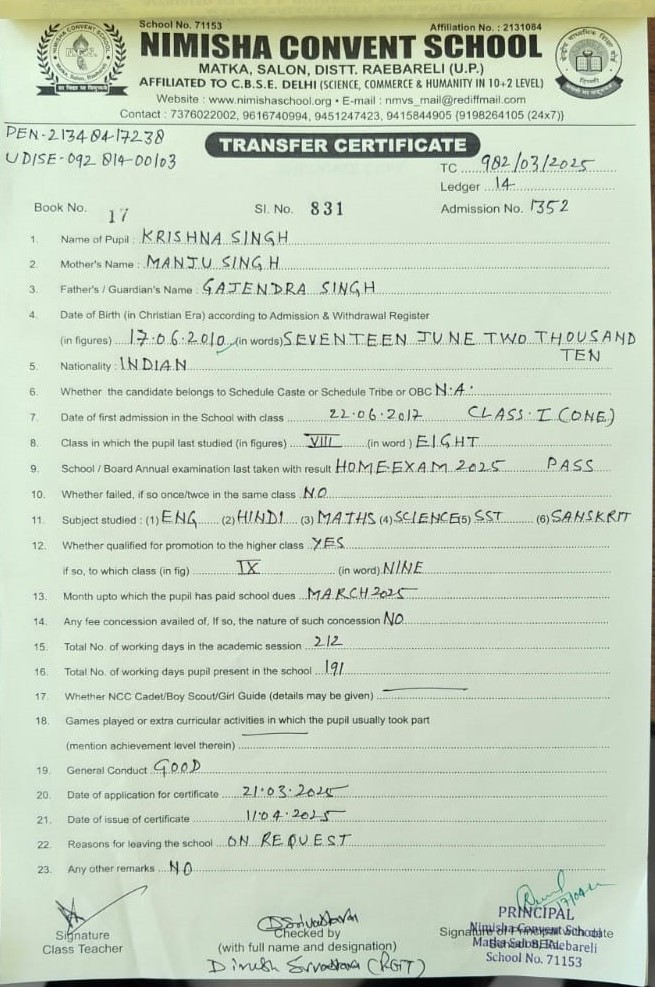 School No. 71153 Affiliation No. : 2131084
NIMISHA CONVENT SCHOOL
MATKA, SALON, DISTT. RAEBARELI (U.P.)
AFFILIATED TO C.B.S.E. DELHI (SCIENCE, COMMERCE & HUMANITY IN 10+2 LEVEL)
Website : www.nimishaschool.org • E-mail : nmvs_mail@rediffmail.com
Contact : 7376022002, 9616740994, 9451247423, 9415844905 {9198264105 (24x7)}
PEN-21348417238
UDISE-092 814-00103
TRANSFER CERTIFICATE
TC 982/03/2025
Ledger 14
Book No. 17 Sl. No. 831 Admission No. 1352
1. Name of Pupil : KRISHNA SINGH
2. Mother's Name : MANJU SINGH
3. Father's / Guardian's Name : GAJENDRA SINGH
4. Date of Birth (in Christian Era) according to Admission & Withdrawal Register
(in figures) 17.06.2010 (in words) SEVENTEEN JUNE TWO THOUSAND
TEN
5. Nationality : INDIAN
6. Whether the candidate belongs to Schedule Caste or Schedule Tribe or OBC N.A.
7. Date of first admission in the School with class 22.06.2017 CLASS-I (ONE)
8. Class in which the pupil last studied (in figures) VIII (in word) EIGHT
9. School / Board Annual examination last taken with result HOME EXAM 2025 PASS
10. Whether failed, if so once/twce in the same class NO
11. Subject studied : (1) ENG (2) HINDI (3) MATHS (4) SCIENCE (5) SST (6) SANSKRIT
12. Whether qualified for promotion to the higher class YES
if so, to which class (in fig) IX (in word) NINE
13. Month upto which the pupil has paid school dues MARCH 2025
14. Any fee concession availed of, If so, the nature of such concession NO
15. Total No. of working days in the academic session 212
16. Total No. of working days pupil present in the school 191
17. Whether NCC Cadet/Boy Scout/Girl Guide (details may be given)
18. Games played or extra curricular activities in which the pupil usually took part
(mention achievement level therein)
19. General Conduct GOOD
20. Date of application for certificate 21.03.2025
21. Date of issue of certificate 11.04.2025
22. Reasons for leaving the school ON REQUEST
23. Any other remarks NO
Signature
Class Teacher
DSrivastava
Checked by
(with full name and designation)
Dinesh Srivastava (PGT)
PRINCIPAL
Nimisha Convent School
Matka Salon, Raebareli
School No. 71153